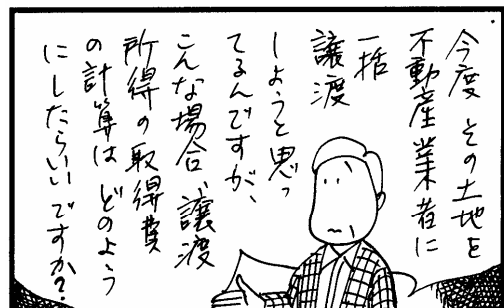 今度 その土地を
不動産業者に
一括
譲渡
しようと思っ
てるんですが、
こんな場合、譲渡
所得の取得費
の計算は どのよう
にしたらいいですか?